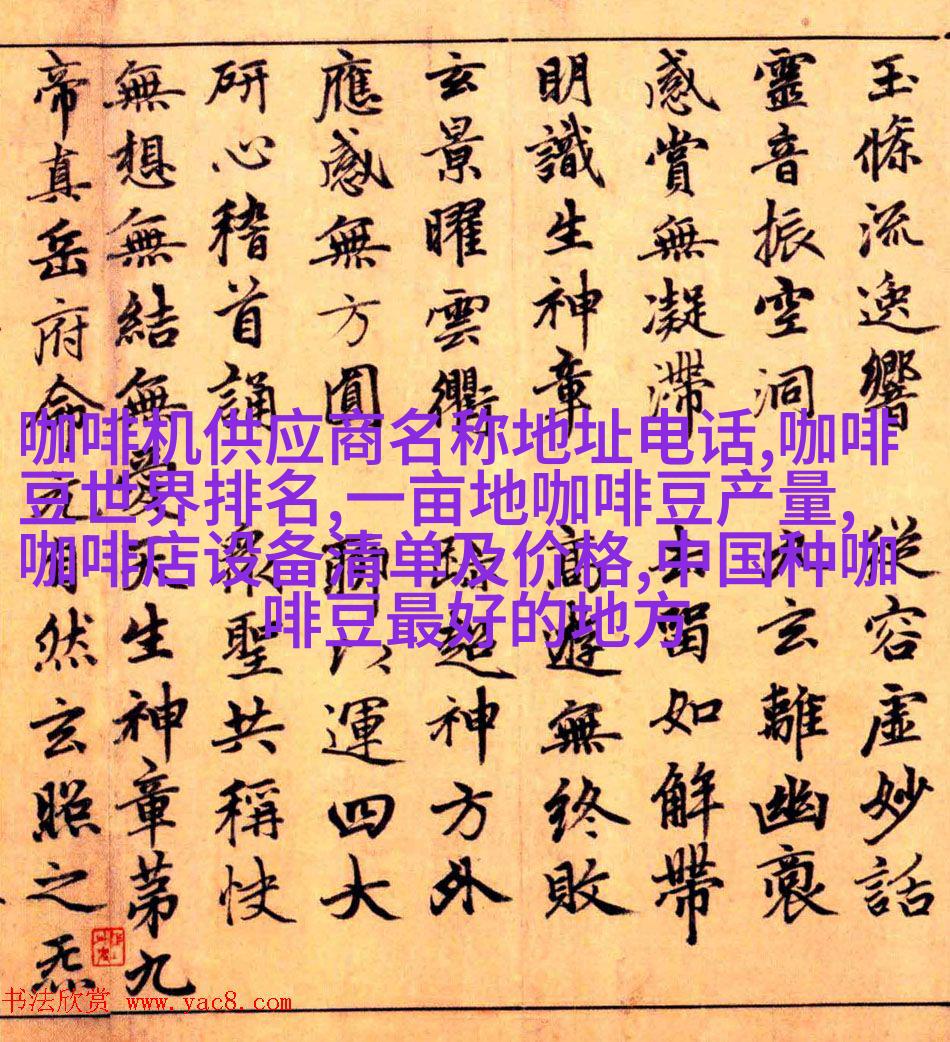 玉條流逸響 從容虛妙話
靈音振空洞 九玄離幽裒
感賞無凝滯 如解帶
明識生神章 高遊無終敗
玄景曜雲衢 超神方外
應感無方圓 運四大
研心稽首誦 聖共稱快
無想無結無愛天生神章第九
帝真岳府 自然玄照之炁
咖啡机供应商名称地址电话,咖啡
豆世界排名,一亩地咖啡豆产量,
咖啡店设备清单及价格,中国种咖
啡豆最好的地方
书法欣赏 www.yac8.com